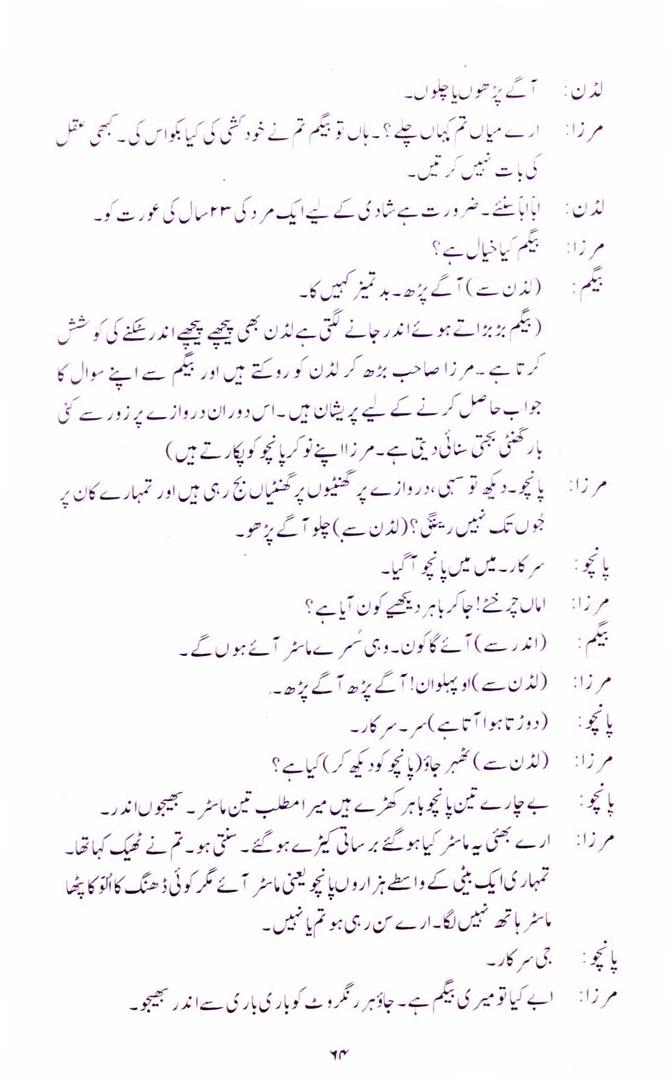 لڈن: آگے پڑھوں یا چلوں۔
مرزا: ارے میاں تم کہاں چلے؟۔ ہاں تو بیگم تم نے خودکشی کی کیا بکواس کی۔ کبھی عقل
کی بات نہیں کرتیں۔
لڈن: ابّا ابّا سنئے۔ ضرورت ہے شادی کے لیے ایک مرد کی ۲۳ سال کی عورت کو۔
مرزا: بیگم کیا خیال ہے؟
بیگم: (لڈن سے) آگے پڑھ۔ بدتمیز کہیں کا۔
(بیگم بڑبڑاتے ہوئے اندر جانے لگتی ہے لڈن بھی پیچھے پیچھے اندر سٹکنے کی کوشش
کرتا ہے۔ مرزا صاحب بڑھ کر لڈن کو روکتے ہیں اور بیگم سے اپنے سوال کا
جواب حاصل کرنے کے لیے پریشان ہیں۔ اس دوران دروازے پر زور سے کئی
بار گھنٹی بجتی سنائی دیتی ہے۔ مرزا اپنے نوکر پانچو کو پکارتے ہیں)
مرزا: پانچو۔ دیکھ تو سہی، دروازے پر گھنٹیوں پر گھنٹیاں بج رہی ہیں اور تمہارے کان پر
جُوں تک نہیں رینگی؟ (لڈن سے) چلو آگے پڑھو۔
پانچو: سرکار۔ میں میں پانچو آگیا۔
مرزا: اماں چرخٹے! جاکر باہر دیکھیے کون آیا ہے؟
بیگم: (اندر سے) آئے گا کون۔ وہی سُسرے ماسٹر آئے ہوں گے۔
مرزا: (لڈن سے) او پہلوان! آگے پڑھ آگے پڑھ۔
پانچو: (دوڑتا ہوا آتا ہے) سر۔ سرکار۔
مرزا: (لڈن سے) ٹھہر جاؤ (پانچو کو دیکھ کر) کیا ہے؟
پانچو: بے چارے تین پانچو باہر کھڑے ہیں میرا مطلب تین ماسٹر۔ بھیجوں اندر۔
مرزا: ارے بھئی یہ ماسٹر کیا ہوگئے برساتی کیڑے ہوگئے۔ سنتی ہو۔ تم نے ٹھیک کہا تھا۔
تمہاری ایک بیٹی کے واسطے ہزاروں پانچو یعنی ماسٹر آئے مگر کوئی ڈھنگ کا اُلّو کا پٹھا
ماسٹر ہاتھ نہیں لگا۔ ارے سن رہی ہو تم یا نہیں۔
پانچو: جی سرکار۔
مرزا: ابے کیا تو میری بیگم ہے۔ جاؤ ہر رنگروٹ کو باری باری سے اندر بھیجو۔
۶۴